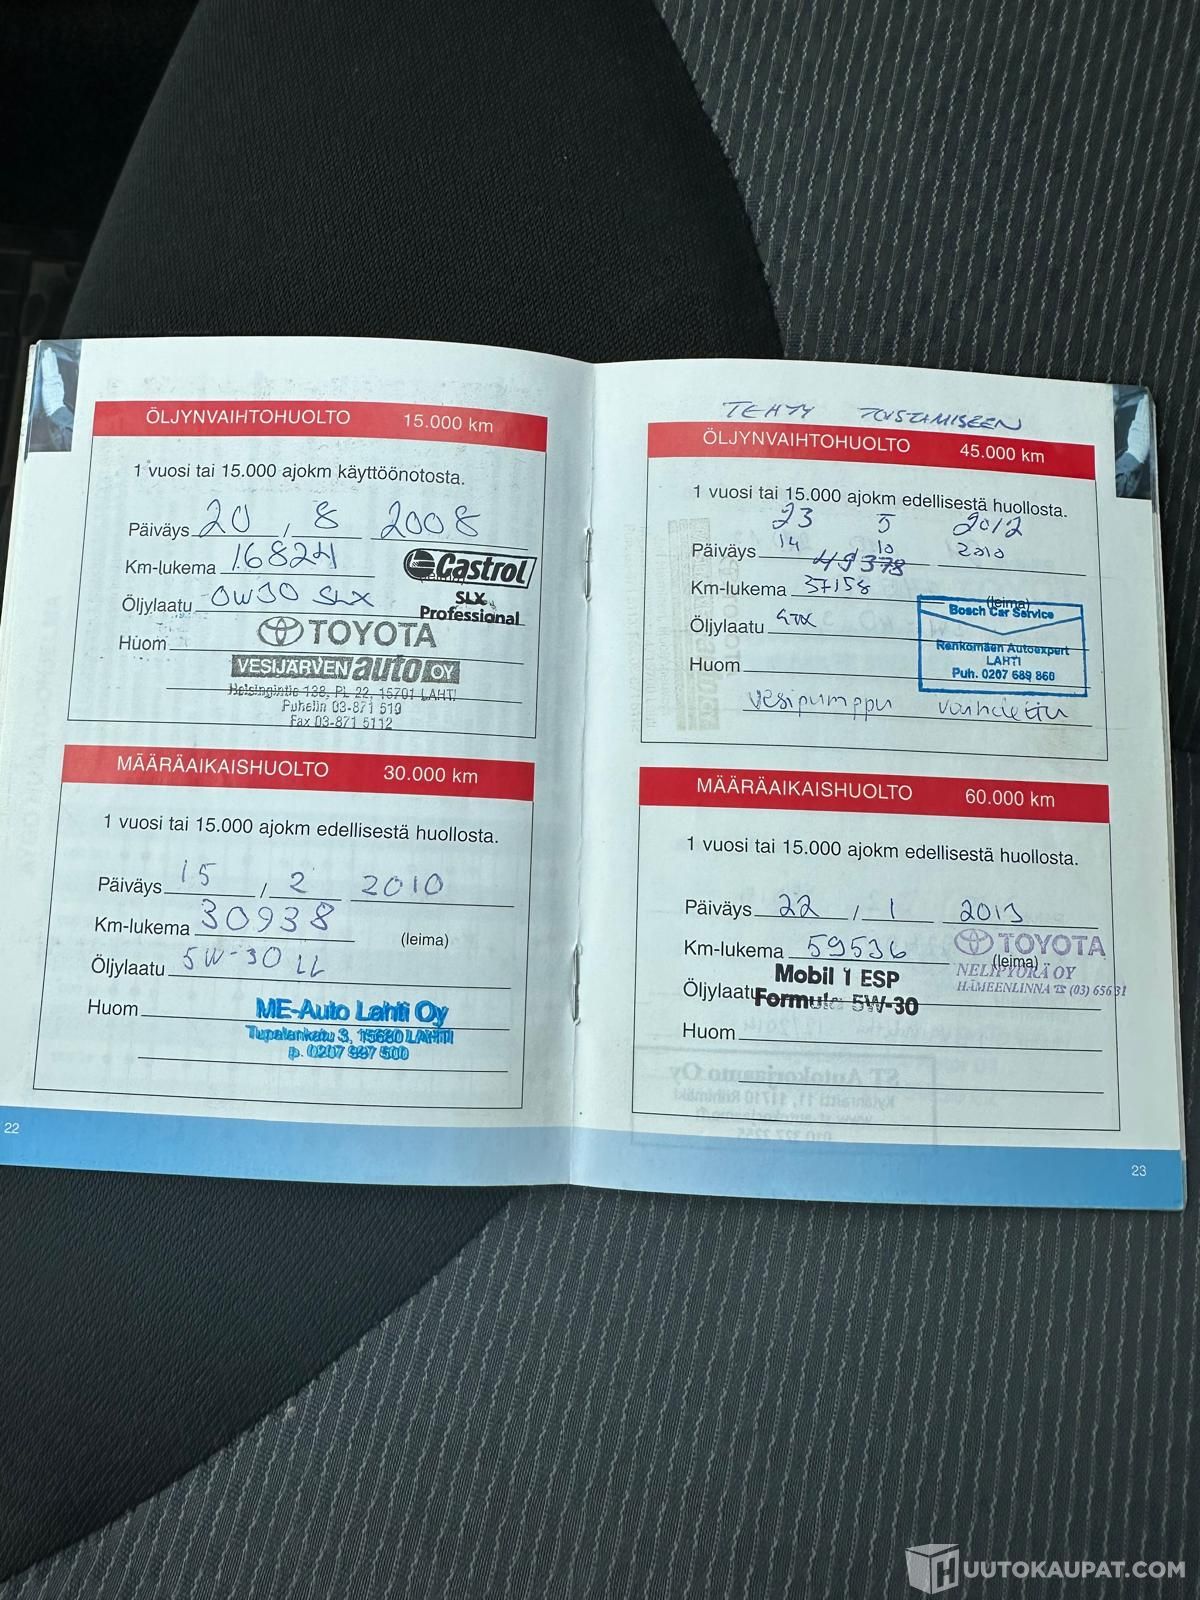 ÖLJYNVAIHTOHUOLTO 15.000 km
1 vuosi tai 15.000 ajokm käyttöönotosta.
Päiväys 20 / 8 2008
Km-lukema 16824
Castrol
Öljylaatu 0W30 SLX
SLX
Professional
Huom
TOYOTA
VESIJÄRVEN auto OY
Helsingintie 138, PL 22, 15701 LAHTI
Puhelin 03-871 510
Fax 03-871 5112
MÄÄRÄAIKAISHUOLTO 30.000 km
1 vuosi tai 15.000 ajokm edellisestä huollosta.
Päiväys 15 / 2 2010
Km-lukema 30938
(leima)
Öljylaatu 5W-30 LL
Huom
ME-Auto Lahti Oy
Tupalankatu 3, 15680 LAHTI
p. 0207 997 500
22
TEHTY TOISTAMISEEN
ÖLJYNVAIHTOHUOLTO 45.000 km
1 vuosi tai 15.000 ajokm edellisestä huollosta.
23 5 2012
Päiväys 14 / 10 2010
49378
Km-lukema 37158
(leima)
Öljylaatu
Bosch Car Service
Renkomäen Autoexpert
LAHTI
Puh. 0207 689 860
Huom
vesipumppu vaihdettu
MÄÄRÄAIKAISHUOLTO 60.000 km
1 vuosi tai 15.000 ajokm edellisestä huollosta.
Päiväys 22 / 1 2013
Km-lukema 59536
(leima)
TOYOTA
NELIPYÖRÄ OY
HÄMEENLINNA ☎ (03) 656 31
Öljylaatu
Mobil 1 ESP
Formula 5W-30
Huom
23
HUUTOKAUPAT.COM